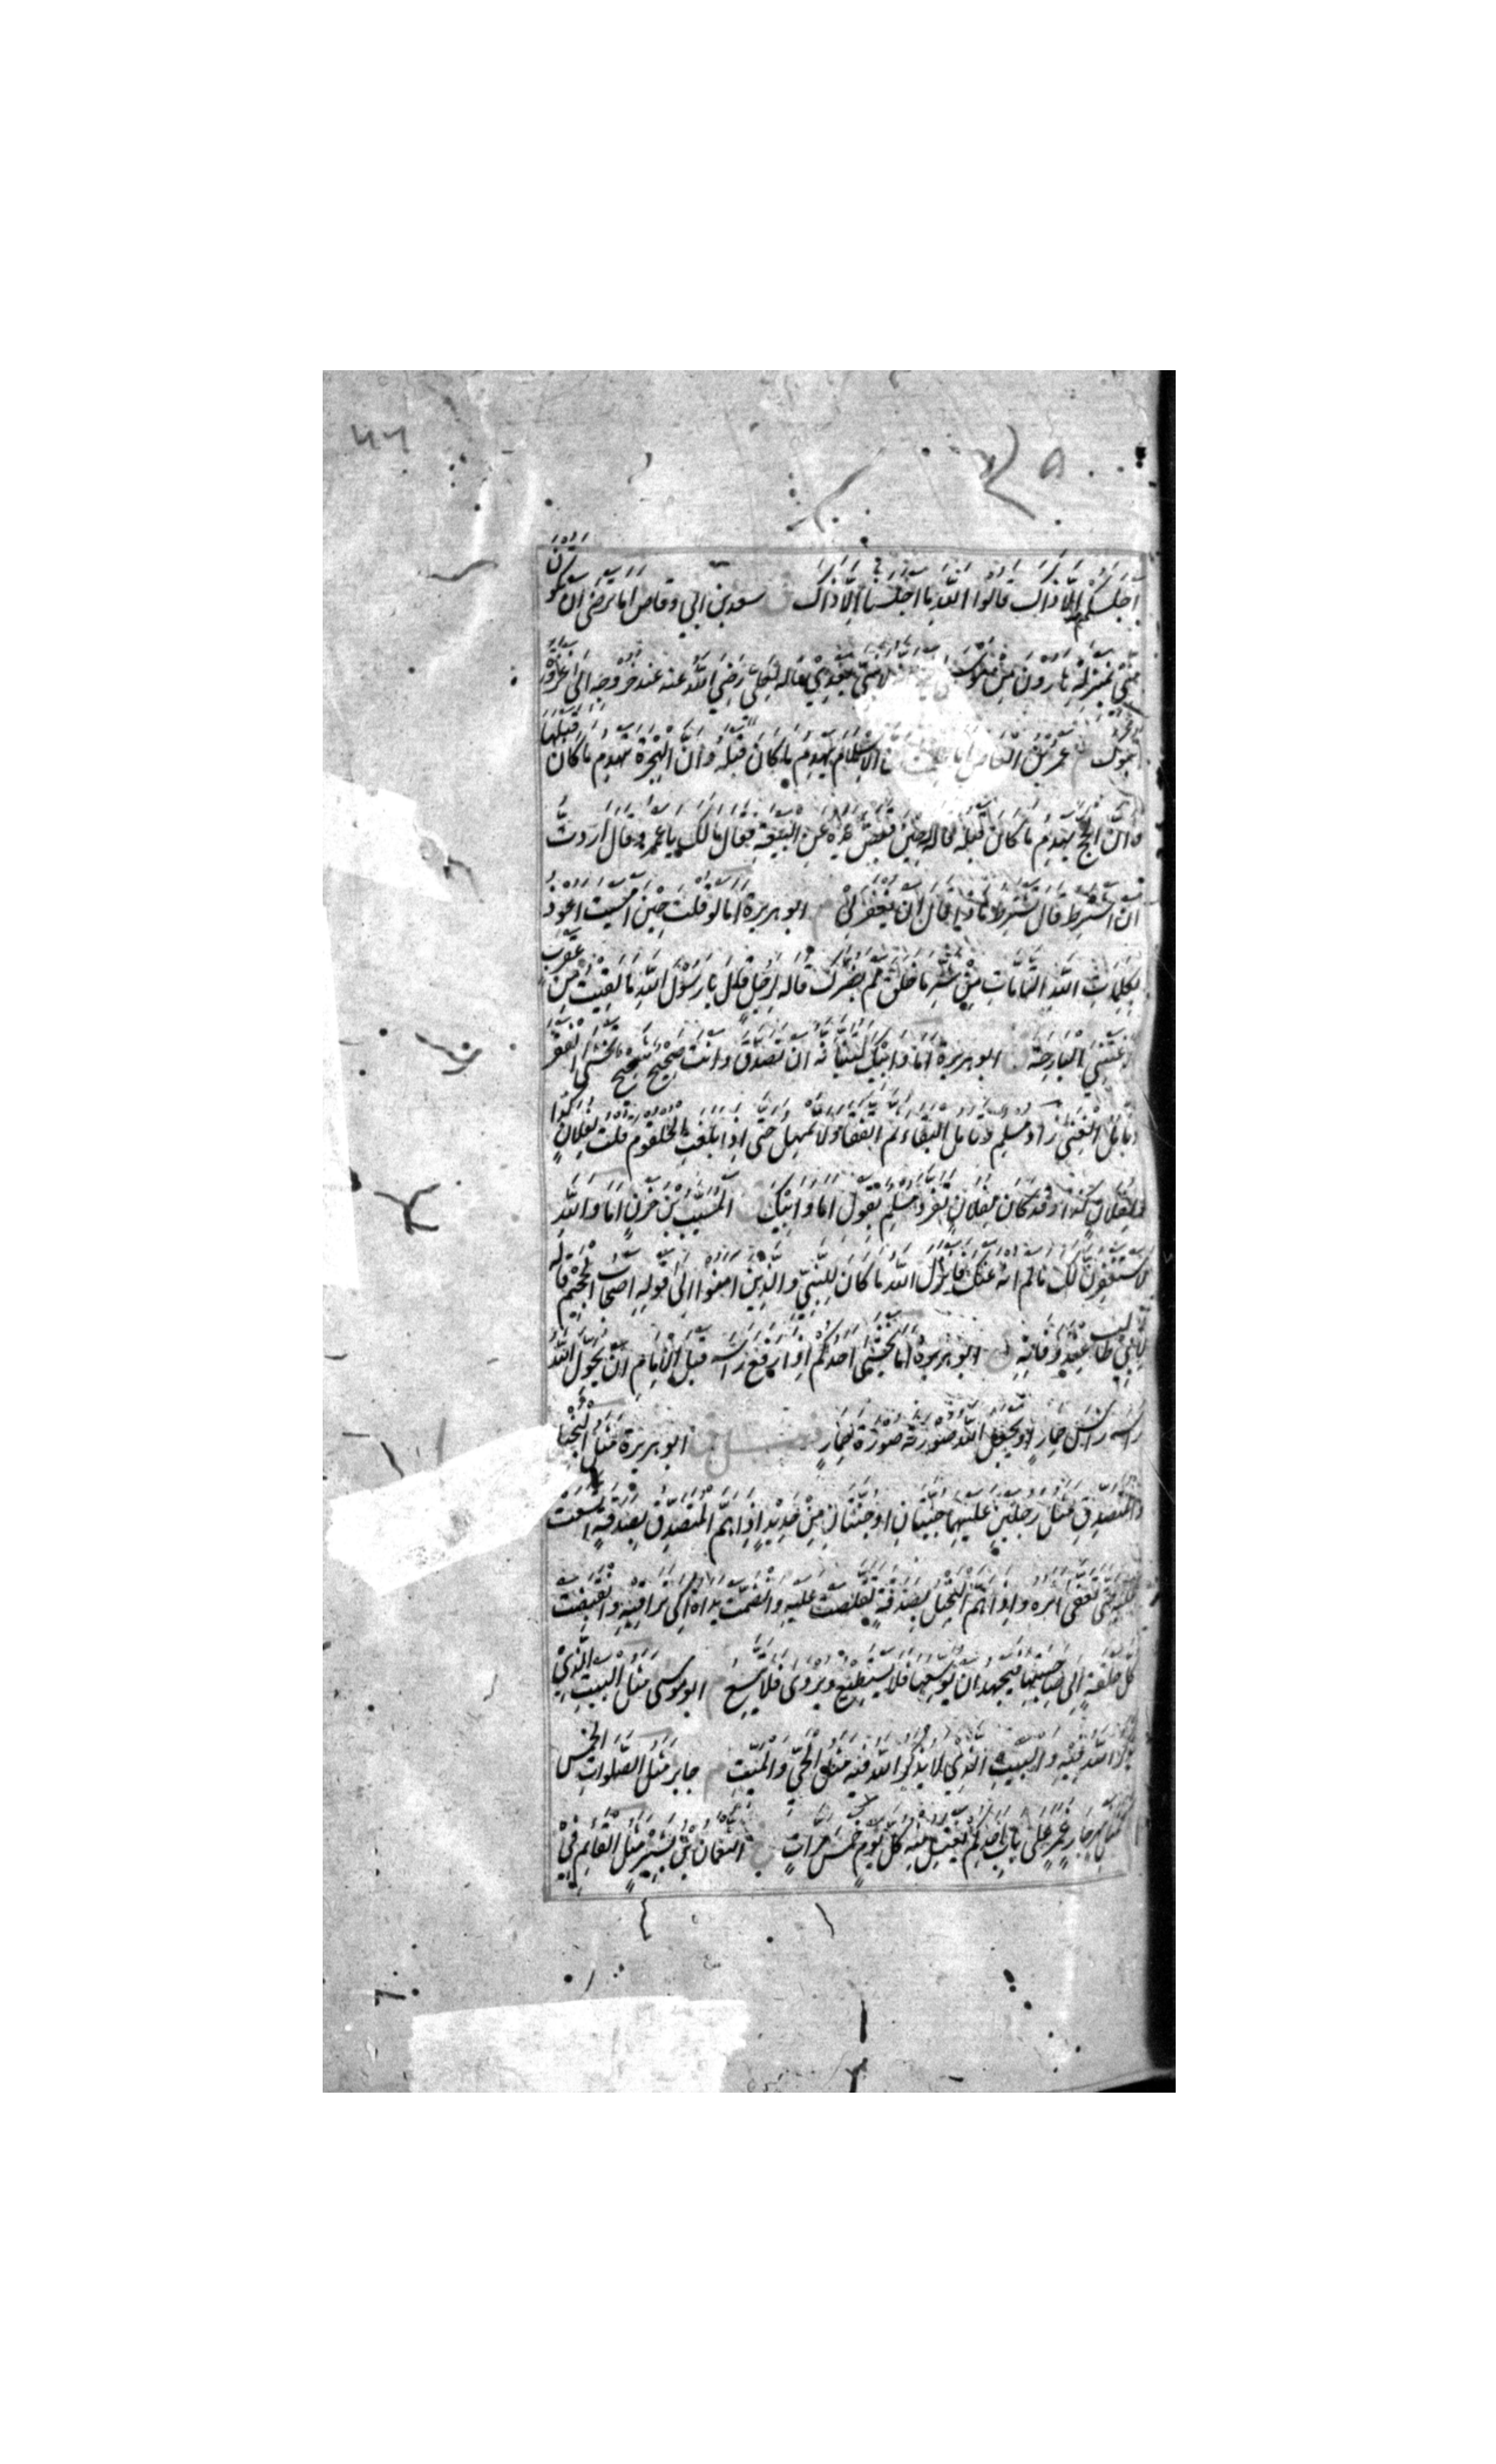 ٥
أَجْلَسَكُمْ إِلَّا ذَاكَ قَالُوا اللَّهِ مَا أَجْلَسَنَا إِلَّا ذَاكَ ق سعد بن ابي وقاص اما ترضى ان تكون
مني بمنزلة هارون من موسى لا نبي بعدي قاله لعلي رضي الله عنه عند خروجه الى غزوة
تبوك م عمرو بن العاص اما علمت ان الاسلام يهدم ما كان قبله وان الهجرة تهدم ما كان قبلها
وان الحج يهدم ما كان قبله قاله حين قبض يده عن البيعة فقال مالك يا عمرو قال اردت
ان اشترط قال تشترط ماذا قال ان يغفر لي م ابو هريرة اما لو قلت حين امسيت اعوذ
بكلمات الله التامات من شر ما خلق لم يضرك قاله لرجل قال يا رسول الله ما لقيت من عقرب
لدغتني البارحة ق ابو هريرة اما وابيك لتنبأنه ان تصدق وانت صحيح شحيح تخشى الفقر
وتأمل الغنى زاد مسلم وتأمل البقاء ثم اتفقا ولا تمهل حتى اذا بلغت الحلقوم قلت لفلان كذا
ولفلان كذا وقد كان لفلان تفرد مسلم بقول اما وابيك ق المسيب بن حزن اما والله
لاستغفرن لك ما لم انه عنك فانزل الله ما كان للنبي والذين امنوا الى قوله اصحاب الجحيم قاله
لابي طالب عند وفاته ق ابو هريرة اما يخشى احدكم اذا رفع راسه قبل الامام ان يحول الله
راسه راس حمار او يجعل الله صورته صورة حمار فصل ق ابو هريرة مثل البخيل
والمتصدق مثل رجلين عليهما جبتان او جنتان من حديد اذا هم المتصدق بصدقة اتسعت
عليه حتى تعفي اثره واذا هم البخيل بصدقة تقلصت عليه وانضمت يداه الى تراقيه وانقبضت
كل حلقة الى صاحبتها فيجهد ان يوسعها فلا يستطيع ويروى فلا تتسع م ابو موسى مثل البيت الذي
يذكر الله فيه والبيت الذي لا يذكر الله فيه مثل الحي والميت م جابر مثل الصلوات الخمس
كمثل نهر جار غمر على باب احدكم يغتسل منه كل يوم خمس مرات خ النعمان بن بشير مثل القائم في